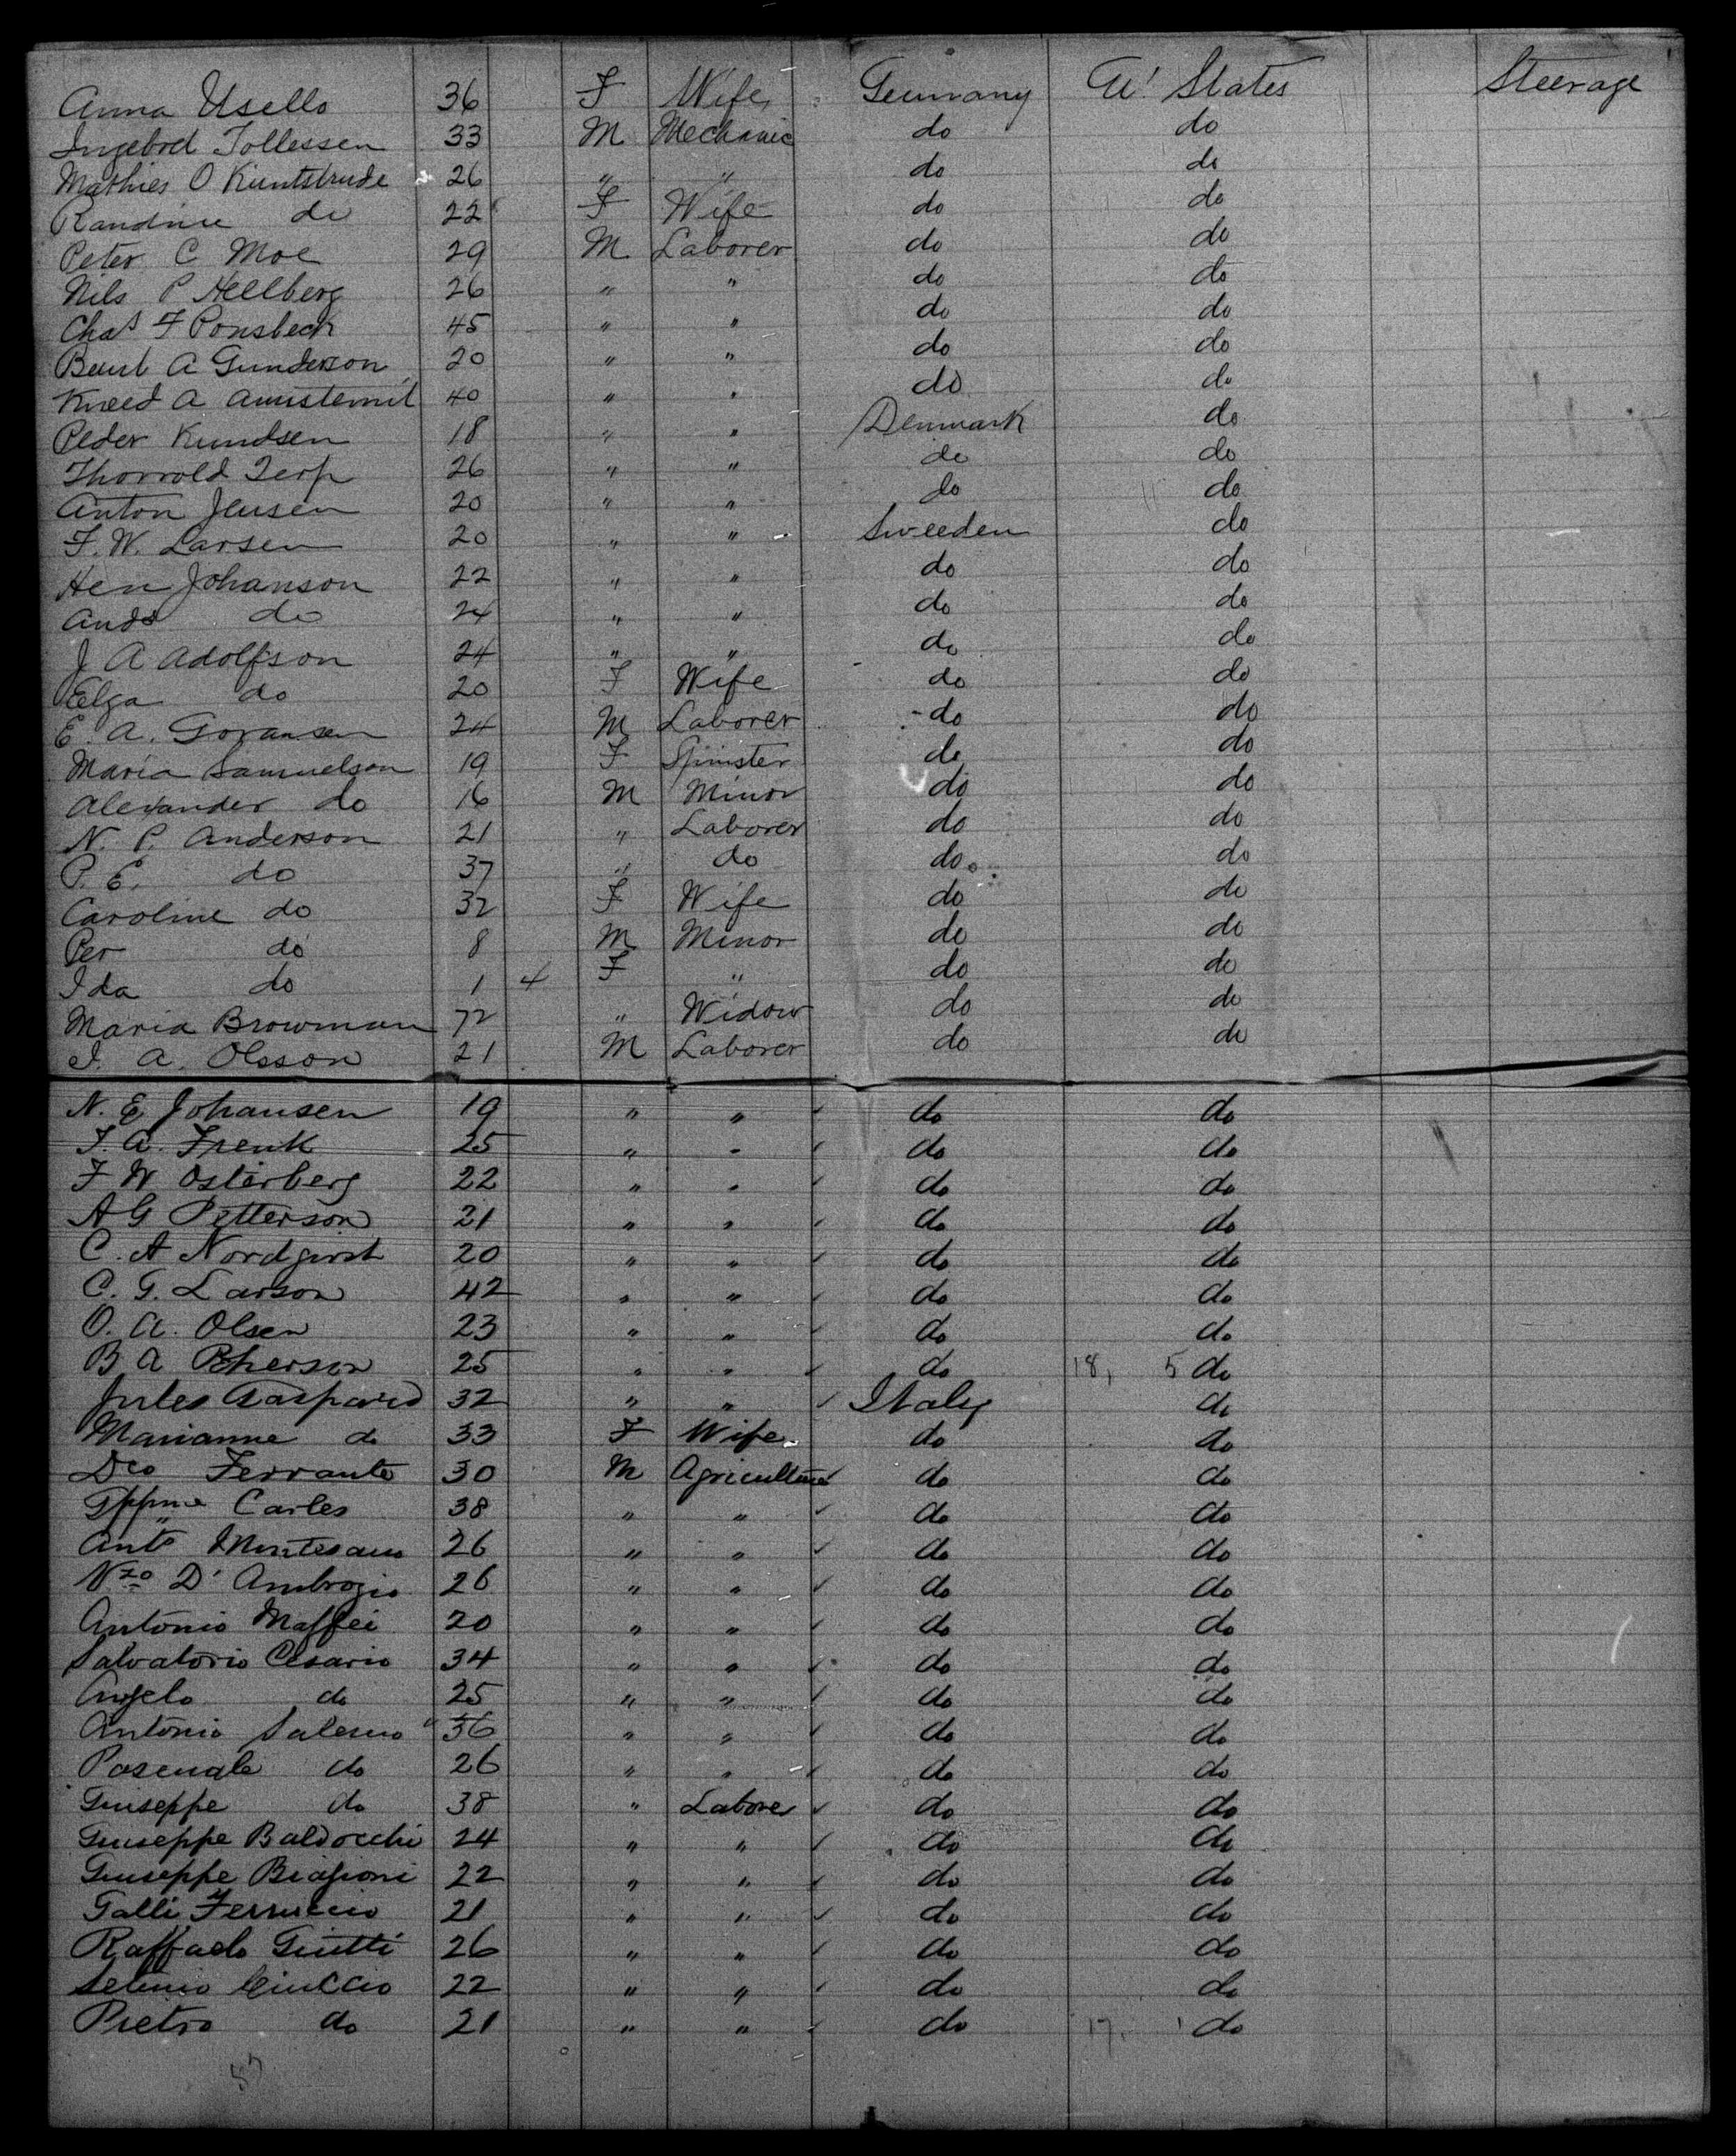 Anna Usello 36 F Wife Germany U. States Steerage
Ingebret Tollessen 33 M Mechanic do do
Mathies O Kuntstrude 26 " " do do
Randine do 22 F Wife do do
Peter C Moe 29 M Laborer do do
Nils P Hellberg 26 " " do do
Chas F Ponsbeck 45 " " do do
A Gunderson 20 " " do do
A 40 " " do do
Peder Kundsen 18 " " Denmark do
Thorvold Terp 26 " " do do
Anton Jensen 20 " " do do
F. W. Larsen 20 " " Sweeden do
Hen Johanson 22 " " do do
Ands do 24 " " do do
J A Adolfson 24 " " do do
Elga do 20 F Wife do do
E. A. Goransen 24 M Laborer do do
Maria Samuelson 19 F Spinster do do
Alexander do 16 M Minor do do
N. P. Anderson 21 " Laborer do do
P. E. do 37 " do do do
Caroline do 32 F Wife do do
Per do 8 M Minor do do
Ida do 1 4 F " do do
Maria Browman 72 " Widow do do
I. A. Olsson 21 M Laborer do do
N. E Johansen 19 " " do do
F. A. Frenk 25 " " do do
F W Osterberg 22 " " do do
A G Petterson 21 " " do do
C. A Nordgirst 20 " " do do
C. G. Larson 42 " " do do
O. A. Olsen 23 " " do do
B A Pherson 25 " " do 18, 5 do
Jules Gaspard 32 " " Italy do
Marianne do 33 F Wife do do
Dco Ferrante 30 M Agriculture do do
Carles 38 " " do do
Anto Montesano 26 " " do do
Nzo D' Ambrogio 26 " " do do
Antonio Maffei 20 " " do do
Salvatorio Cesario 34 " " do do
Angelo do 25 " " do do
Antonio Salerno 36 " " do do
Pascuale do 26 " " do do
Giuseppe do 38 " Laborer do do
Giuseppe Baldocchi 24 " " do do
Giuseppe Biagioni 22 " " do do
Galli Ferruccio 21 " " do do
Raffaelo Giutti 26 " " do do
Selmio Ciuccio 22 " " do do
Pietro do 21 " " do 17, 1 do